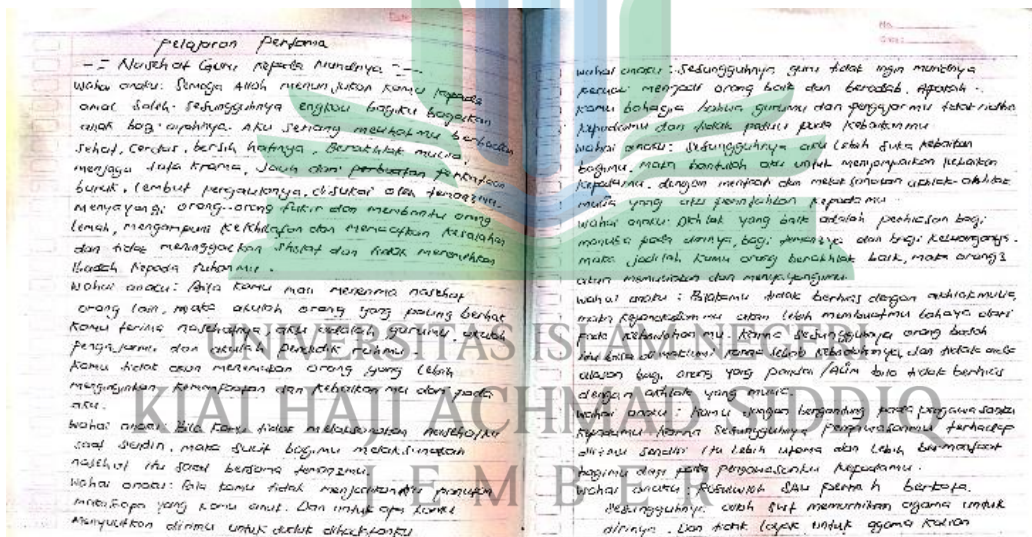 Pelajaran Pertama
Nasehat Guru kepada Muridnya
Wahai anaku: Semoga Allah menunjukan kamu kepada
amal Saleh. Sesungguhnya engkau bagiku bagaikan
anak bagi ayahnya. Aku senang melihatmu berbadan
Sehat, Cerdas, bersih hatinya, Berakhlak mulia,
menjaga tata krama, Jauh dari perkataan
buruk, lembut pergaulannya, disukai oleh
menyayangi orang-orang fakir dan membantu orang
lemah, mengampuni kekhilafan dan memaafkan kesalahan
dan tidak meninggalkan Sholat dan tidak
Ibadah kepada tuhanmu.
Wahai anaku: Bila kamu mau menerima nasehat
orang lain, maka akulah orang yang paling berhak
kamu terima nasehatnya. aku adalah gurumu. akulah
dan akulah pendidik ruhmu.
Kamu tidak akan menemukan orang yang lebih
menginginkan kemanfaatan dan kebaikan mu dari pada
aku.
Wahai anaku: Bila kamu tidak melaksanakan nasehatku
saat sendiri, maka sulit bagimu melaksanakan
nasehat itu saat bersama temanmu.
Wahai anaku: Bila kamu tidak menjadikanku panutan
yang kamu anut. Dan untuk apa kamu
menyulitkan dirimu untuk duduk dihadapanku
No.
Date:
Wahai anaku: Sesungguhnya guru tidak ingin muridnya
kecuali menjadi orang baik dan beradab. Apakah
kamu bahagia bahwa gurumu dan pengajarmu tidak ridho
kepadamu dan tidak pada kebaikanmu.
Wahai anaku: Sesungguhnya aku lebih suka kebaikan
bagimu, maka bantulah aku untuk menyampaikan kebaikan
kepadamu. dengan mentaati dan melaksanakan akhlak-akhlak
mulia yang aku perintahkan kepadamu
Wahai anaku: Akhlak yang baik adalah perhiasan bagi
manusia pada dirinya, bagi dan bagi keluarganya.
maka jadilah kamu orang berakhlak baik, maka orang2
akan memuliakan dan menyayangimu
Wahai anaku: Bilakamu tidak berhias dengan akhlak mulia,
maka mu akan lebih membuatmu bahaya dari
pada kebodohan mu. karna Sesungguhnya orang bodoh
itu bisa di maklumi karna sebab kebodohannya, dan tidak ada
alasan bagi orang yang pandai/Alim bila tidak berhias
dengan akhlak yang mulia.
Wahai anaku: kamu jangan bergantung pada pengawasanku
kepadamu. karna Sesungguhnya pengawasanmu terhadap
dirimu sendiri itu lebih utama dan lebih bermanfaat
bagimu dari pada pengawasanku kepadamu.
Wahai anaku: Rosulullah SAW pernah berkata.
Sesungguhnya allah memurnikan agama untuk
dirinya. Dan tidak layak untuk agama kalian
UNIVERSITAS ISLAM NEGERI
KIAI HAJI ACHMAD SIDDIQ
JEMBER